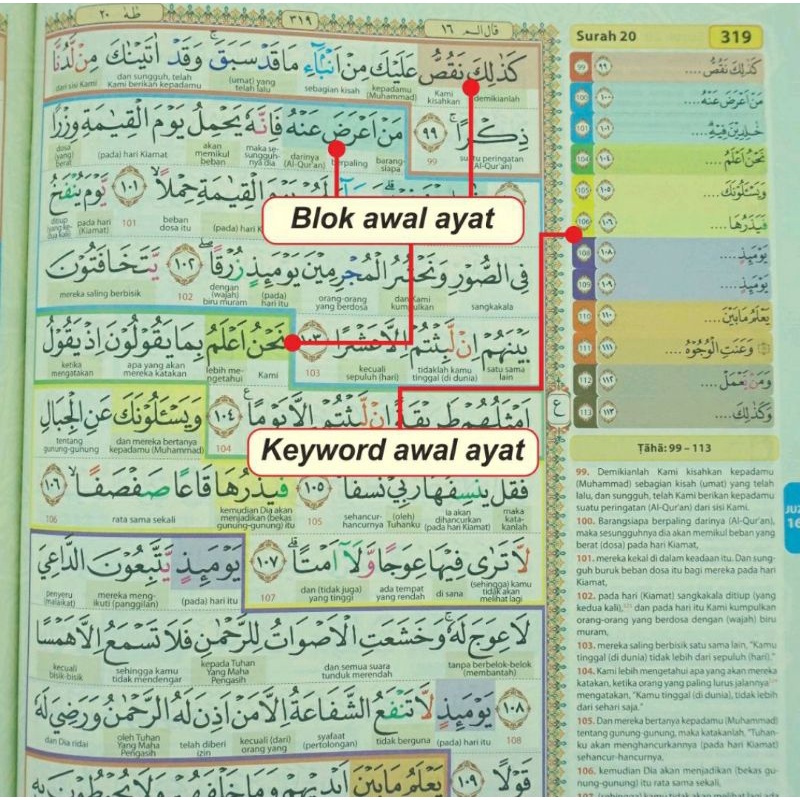 قال الم ١٦
٣١٩
طٰهٰ ٢٠
كَذٰلِكَ نَقُصُّ عَلَيْكَ مِنْ اَنْۢبَاۤءِ مَا قَدْ سَبَقَۚ وَقَدْ اٰتَيْنٰكَ مِنْ لَّدُنَّا
demikianlah Kami kisahkan kepadamu (Muhammad) sebagian kisah (umat) yang telah lalu dan sungguh, telah Kami berikan kepadamu dari sisi Kami
ذِكْرًاۚ ٩٩ مَنْ اَعْرَضَ عَنْهُ فَاِنَّهٗ يَحْمِلُ يَوْمَ الْقِيٰمَةِ وِزْرًا
suatu peringatan (Al-Qur'an) 99 barang-siapa berpaling darinya (Al-Qur'an) maka sesungguhnya dia akan memikul beban (pada) hari Kiamat dosa (yang) berat
يَوْمَ الْقِيٰمَةِ حِمْلًاۙ ١٠١ يَّوْمَ يُنْفَخُ
(pada) hari Kiamat beban dosa itu 101 pada hari (Kiamat) ditiup (yang kedua kali)
Blok awal ayat
فِى الصُّوْرِ وَنَحْشُرُ الْمُجْرِمِيْنَ يَوْمَىِٕذٍ زُرْقًاۖ ١٠٢ يَّتَخَافَتُوْنَ
sangkakala dan Kami kumpulkan orang-orang yang berdosa (pada) hari itu dengan (wajah) biru muram 102 mereka saling berbisik
بَيْنَهُمْ اِنْ لَّبِثْتُمْ اِلَّا عَشْرًا ١٠٣ نَحْنُ اَعْلَمُ بِمَا يَقُوْلُوْنَ اِذْ يَقُوْلُ
satu sama lain tidaklah kamu tinggal (di dunia) kecuali sepuluh (hari) 103 Kami lebih mengetahui apa yang akan mereka katakan ketika mengatakan
اَمْثَلُهُمْ طَرِيْقَةً اِنْ لَّبِثْتُمْ اِلَّا يَوْمًا ١٠٤ وَيَسْـَٔلُوْنَكَ عَنِ الْجِبَالِ
104 dan mereka bertanya kepadamu (Muhammad) tentang gunung-gunung
Keyword awal ayat
فَقُلْ يَنْسِفُهَا رَبِّيْ نَسْفًا ١٠٥ فَيَذَرُهَا قَاعًا صَفْصَفًا ١٠٦
maka katakanlah ia akan dihancurkan (pada hari Kiamat) (oleh) Tuhanku sehancur-hancurnya 105 kemudian Dia akan menjadikan (bekas gunung-gunung) itu rata sama sekali 106
لَا تَرٰى فِيْهَا عِوَجًا وَّلَآ اَمْتًا ١٠٧ يَوْمَىِٕذٍ يَّتَّبِعُوْنَ الدَّاعِيَ
(sehingga) kamu tidak akan melihat lagi di sana ada tempat yang rendah dan (tidak juga) yang tinggi 107 (pada) hari itu mereka mengikuti (panggilan) penyeru (malaikat)
لَا عِوَجَ لَهٗۚ وَخَشَعَتِ الْاَصْوَاتُ لِلرَّحْمٰنِ فَلَا تَسْمَعُ اِلَّا هَمْسًا
tanpa berbelok-belok (membantah) dan semua suara tunduk merendah kepada Tuhan Yang Maha Pengasih sehingga kamu tidak mendengar kecuali bisik-bisik
١٠٨ يَوْمَىِٕذٍ لَّا تَنْفَعُ الشَّفَاعَةُ اِلَّا مَنْ اَذِنَ لَهُ الرَّحْمٰنُ وَرَضِيَ لَهٗ
108 (pada) hari itu tidak berguna syafaat (pertolongan) kecuali (dari) orang yang telah diberi izin oleh Tuhan Yang Maha Pengasih dan Dia ridai
قَوْلًا ١٠٩ يَعْلَمُ مَا بَيْنَ اَيْدِيْهِمْ وَمَا خَلْفَهُمْ وَلَا يُحِيْطُوْنَ بِهٖ
Surah 20
319
99 ٩٩ كَذٰلِكَ نَقُصُّ ....
100 ١٠٠ مَنْ اَعْرَضَ عَنْهُ ....
101 ١٠١ خٰلِدِيْنَ فِيْهِ ....
104 ١٠٤ نَحْنُ اَعْلَمُ ....
105 ١٠٥ وَيَسْـَٔلُوْنَكَ ....
106 ١٠٦ فَيَذَرُهَا ....
108 ١٠٨ يَوْمَىِٕذٍ ....
109 ١٠٩ يَوْمَىِٕذٍ ....
110 ١١٠ يَعْلَمُ مَا بَيْنَ ....
111 ١١١ وَعَنَتِ الْوُجُوْهُ ....
112 ١١٢ وَمَنْ يَّعْمَلْ ....
113 ١١٣ وَكَذٰلِكَ ....
ع
Ṭāhā: 99 – 113
99. Demikianlah Kami kisahkan kepadamu
(Muhammad) sebagian kisah (umat) yang telah
lalu, dan sungguh, telah Kami berikan kepadamu
suatu peringatan (Al-Qur'an) dari sisi Kami.
100. Barangsiapa berpaling darinya (Al-Qur'an),
maka sesungguhnya dia akan memikul beban yang
berat (dosa) pada hari Kiamat,
101. mereka kekal di dalam keadaan itu. Dan sung-
guh buruk beban dosa itu bagi mereka pada hari
Kiamat,
102. pada hari (Kiamat) sangkakala ditiup (yang
kedua kali), dan pada hari itu Kami kumpulkan
orang-orang yang berdosa dengan (wajah) biru
muram,
103. mereka saling berbisik satu sama lain, "Kamu
tinggal (di dunia) tidak lebih dari sepuluh (hari)."
104. Kami lebih mengetahui apa yang akan mereka
katakan, ketika orang yang paling lurus jalannya
mengatakan, "Kamu tinggal (di dunia), tidak lebih
dari sehari saja."
105. Dan mereka bertanya kepadamu (Muhammad)
tentang gunung-gunung, maka katakanlah, "Tuhan-
ku akan menghancurkannya (pada hari Kiamat)
sehancur-hancurnya,
106. kemudian Dia akan menjadikan (bekas gu-
nung-gunung) itu rata sama sekali,
JUZ
16